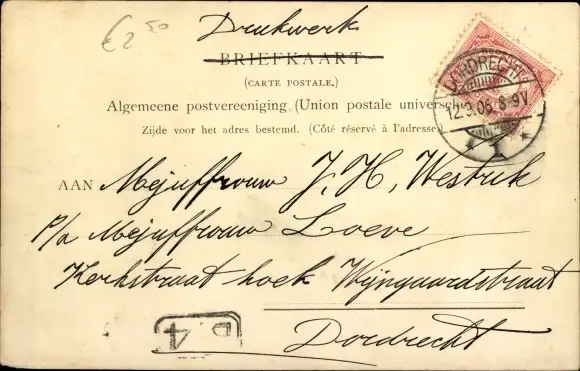 €2 50
Drukwerk
BRIEFKAART
(CARTE POSTALE.)
Algemeene postvereeniging (Union postale univers
Zijde voor het adres bestemd. (Côté réservé à l'adresse.
DORDRECHT
12.9.06. 8-9V
1
AAN Mejuffrouw J. H. Westrik
P/a Mejuffrouw Loeve
Kerkstraat hoek Wijngaardstraat
Dordrecht
D 4